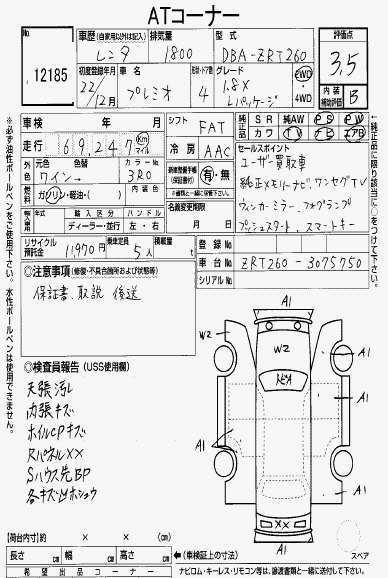 ATコーナー
No 12185
車歴 (自家用以外は記入) 排気量 型式
レンタ 1800 DBA-ZRT260
評価点 3.5
初度登録年月 車名 形状・ドア数 グレード
22/12月 プレミオ 4 1.8X Lパッケージ
2WD ・ 4WD
内装補助評価 B
車検 年 月
シフト FAT
純正品 SR 純AW PS PW
カワ TV ナビ エアB
走行 69,247 Km マイル
冷房 AAC
セールスポイント
外色 元色 色替 カラーNo
ワイン→ 3R0
ユーザー買取車
純正メモリーナビ、ワンセグTV
ウィンカーミラー、フォグランプ
プッシュスタート、スマートキー
燃料 ガソリン・軽油・( ) 内装色
(保証書付) 有・無
※書類と一緒に保管下さい
年式 輸入区分 ハンドル
ディーラー・並行 左・右
名義変更期限 月 日
リサイクル預託金 11,970円 乗車定員 5人 積載量 t
登録No
車台No ZRT260-3075750
シリアルNo
◎注意事項 (修復・不具合箇所および状態等)
保証書、取説 後送
◎検査員報告 (USS使用欄)
天張汚レ
内張キズ
ホイルCPキズ
RパネルXX
Sハウス先BP
各キズ凹ホシュウ
A1
W2
W2
A1
A1
A1
XX
A1
スペア
※必ず油性ボールペンをご使用下さい。水性ボールペンは使用できません。
↑純正品に限り該当に○をつけて下さい。
【荷台内寸】 × × (cm)
長さ cm 幅 cm 高さ cm ←(車検証上の寸法)
希望出品コーナー
ナビロム・キーレス・リモコン等は、譲渡書類と一緒に送付して下さい。